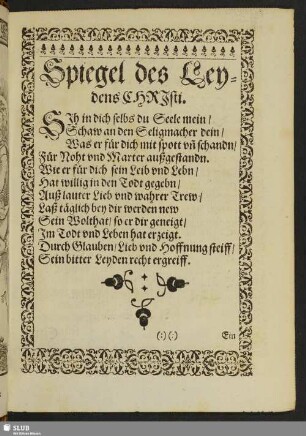 Spiegel des Ley-
dens CHRIsti.
SIh in dich selbs du Seele mein/
Schaw an den Seligmacher dein/
Was er für dich mit spott vñ schandn/
Für Noht vnd Marter außgestandn.
Wie er für dich sein Leib vnd Lebn/
Hat willig in den Todt gegebn/
Auß lauter Lieb vnd wahrer Trew/
Laß täglich bey dir werden new
Sein Wolthat/ so er dir geneigt/
Im Todt vnd Leben hat erzeigt.
Durch Glauben/ Lieb vnd Hoffnung steiff/
Sein bitter Leyden recht ergreiff.
(:) (:)
Ein
SLUB